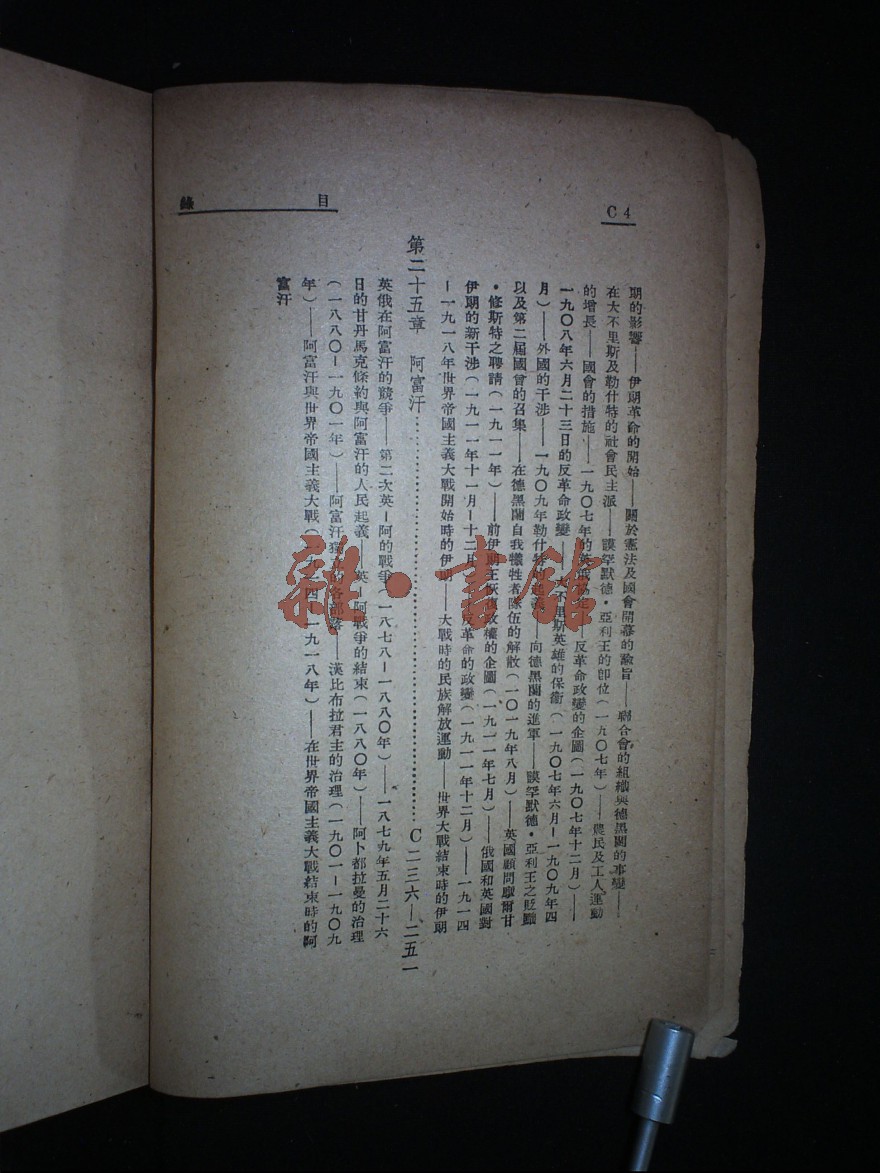 目錄
C 4
期的影響——伊朗革命的開始——關於憲法及國會開幕的諭旨——聯合會的組織與德黑蘭的事變——
在大不里斯及勒什特的社會民主派——謨罕默德・亞利王的卽位(一九〇七年)——農民及工人運動
的增長——國會的措施——一九〇七年的英俄協定——反革命政變的企圖(一九〇七年十二月)——
一九〇八年六月二十三日的反革命政變——大不里斯英雄的保衞(一九〇七年六月—一九〇九年四
月)——外國的干涉——一九〇九年勒什特的起義——向德黑蘭的進軍——謨罕默德・亞利王之貶黜
以及第二屆國會的召集——在德黑蘭自我犧牲者隊伍的解散(一〇一九年八月)——英國顧問摩爾甘
・修斯特之聘請(一九一一年)——前伊朗王恢復政權的企圖(一九一一年七月)——俄國和英國對
伊朗的新干涉(一九一一年十一月—十二月)——反革命的政變(一九一一年十二月)——一九一四
—一九一八年世界帝國主義大戰開始時的伊朗——大戰時的民族解放運動——世界大戰結束時的伊朗
第二十五章 阿富汗……………………………………C 二三六—二五一
英俄在阿富汗的競爭——第二次英—阿的戰爭(一八七八—一八八〇年)——一八七九年五月二十六
日的甘丹馬克條約與阿富汗的人民起義——英—阿戰爭的結束(一八八〇年)——阿卜都拉曼的治理
(一八八〇—一九〇一年)——阿富汗獨立的各部落——漢比布拉君主的治理(一九〇一—一九〇九
年)——阿富汗與世界帝國主義大戰(一九一四—一九一八年)——在世界帝國主義大戰結束時的阿
富汗
雜・書館